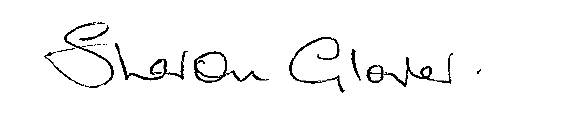 Sharon Glover.